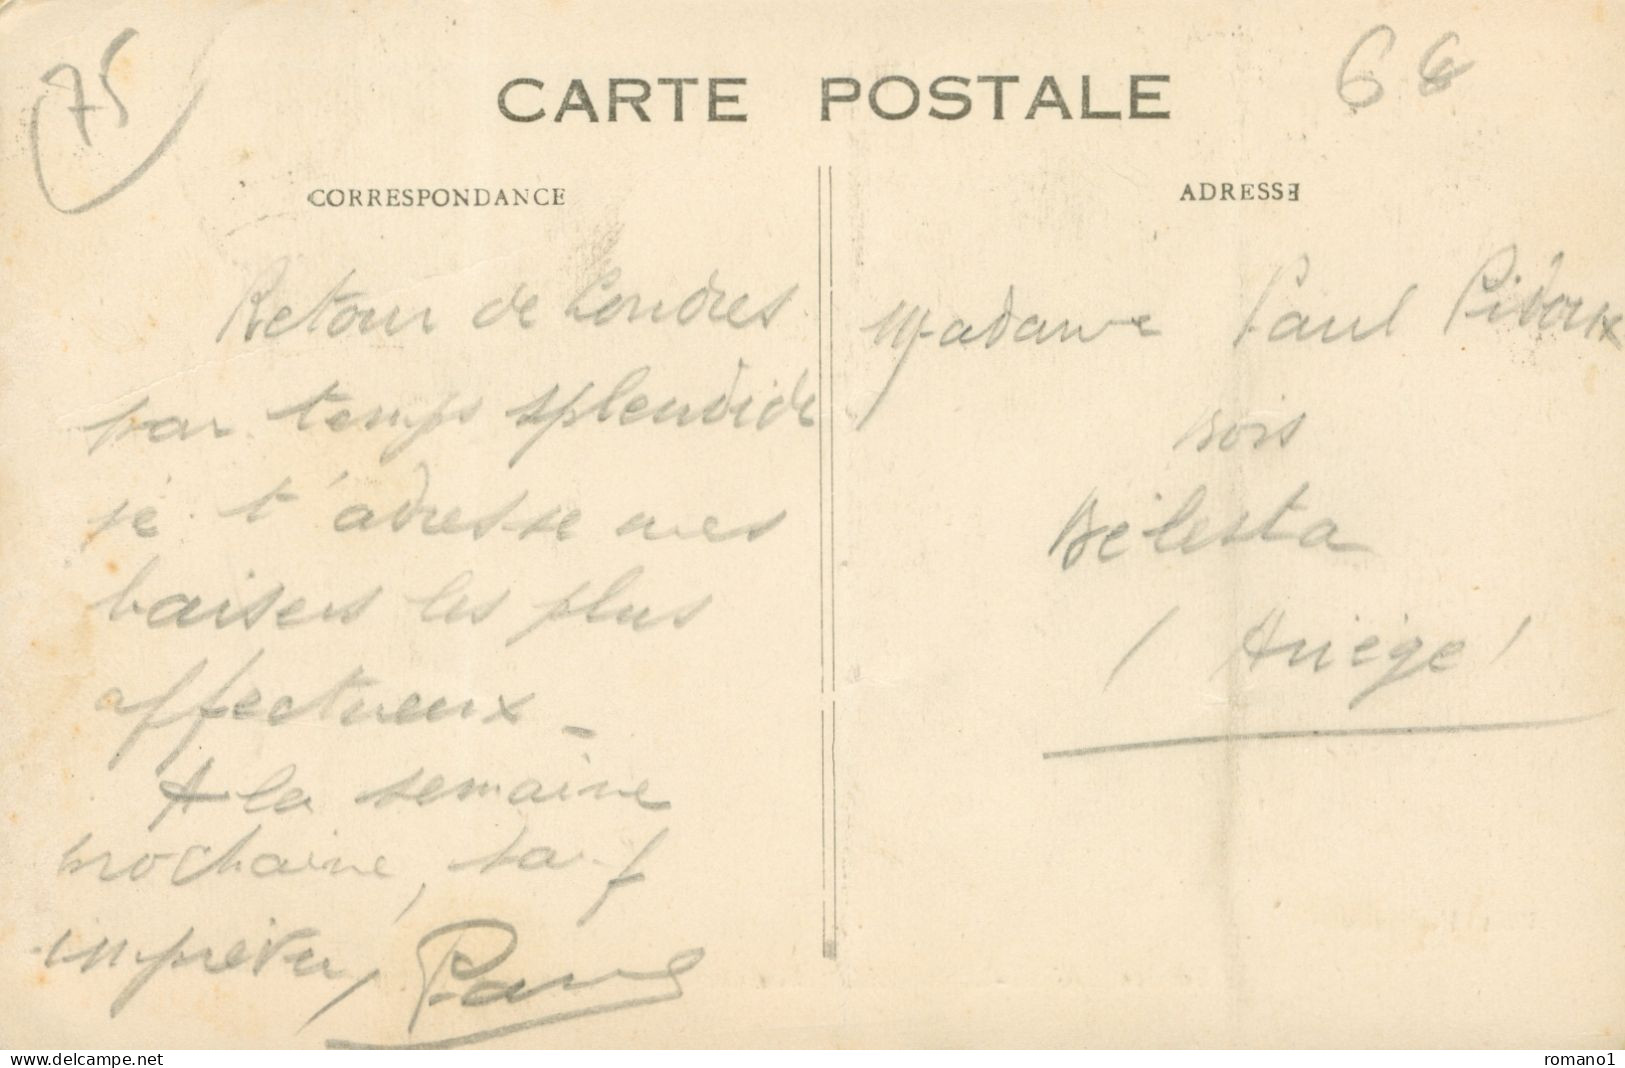 75
CARTE POSTALE
6€
CORRESPONDANCE
Retour de Londres
par temps splendide
je t'adresse mes
baisers les plus
affectueux_
A la semaine
prochaine, sauf
imprévu,
Paul
ADRESSE
Madame Paul Pidoux
Bois
Bélesta
(Ariège)
www.delcampe.net
romano1